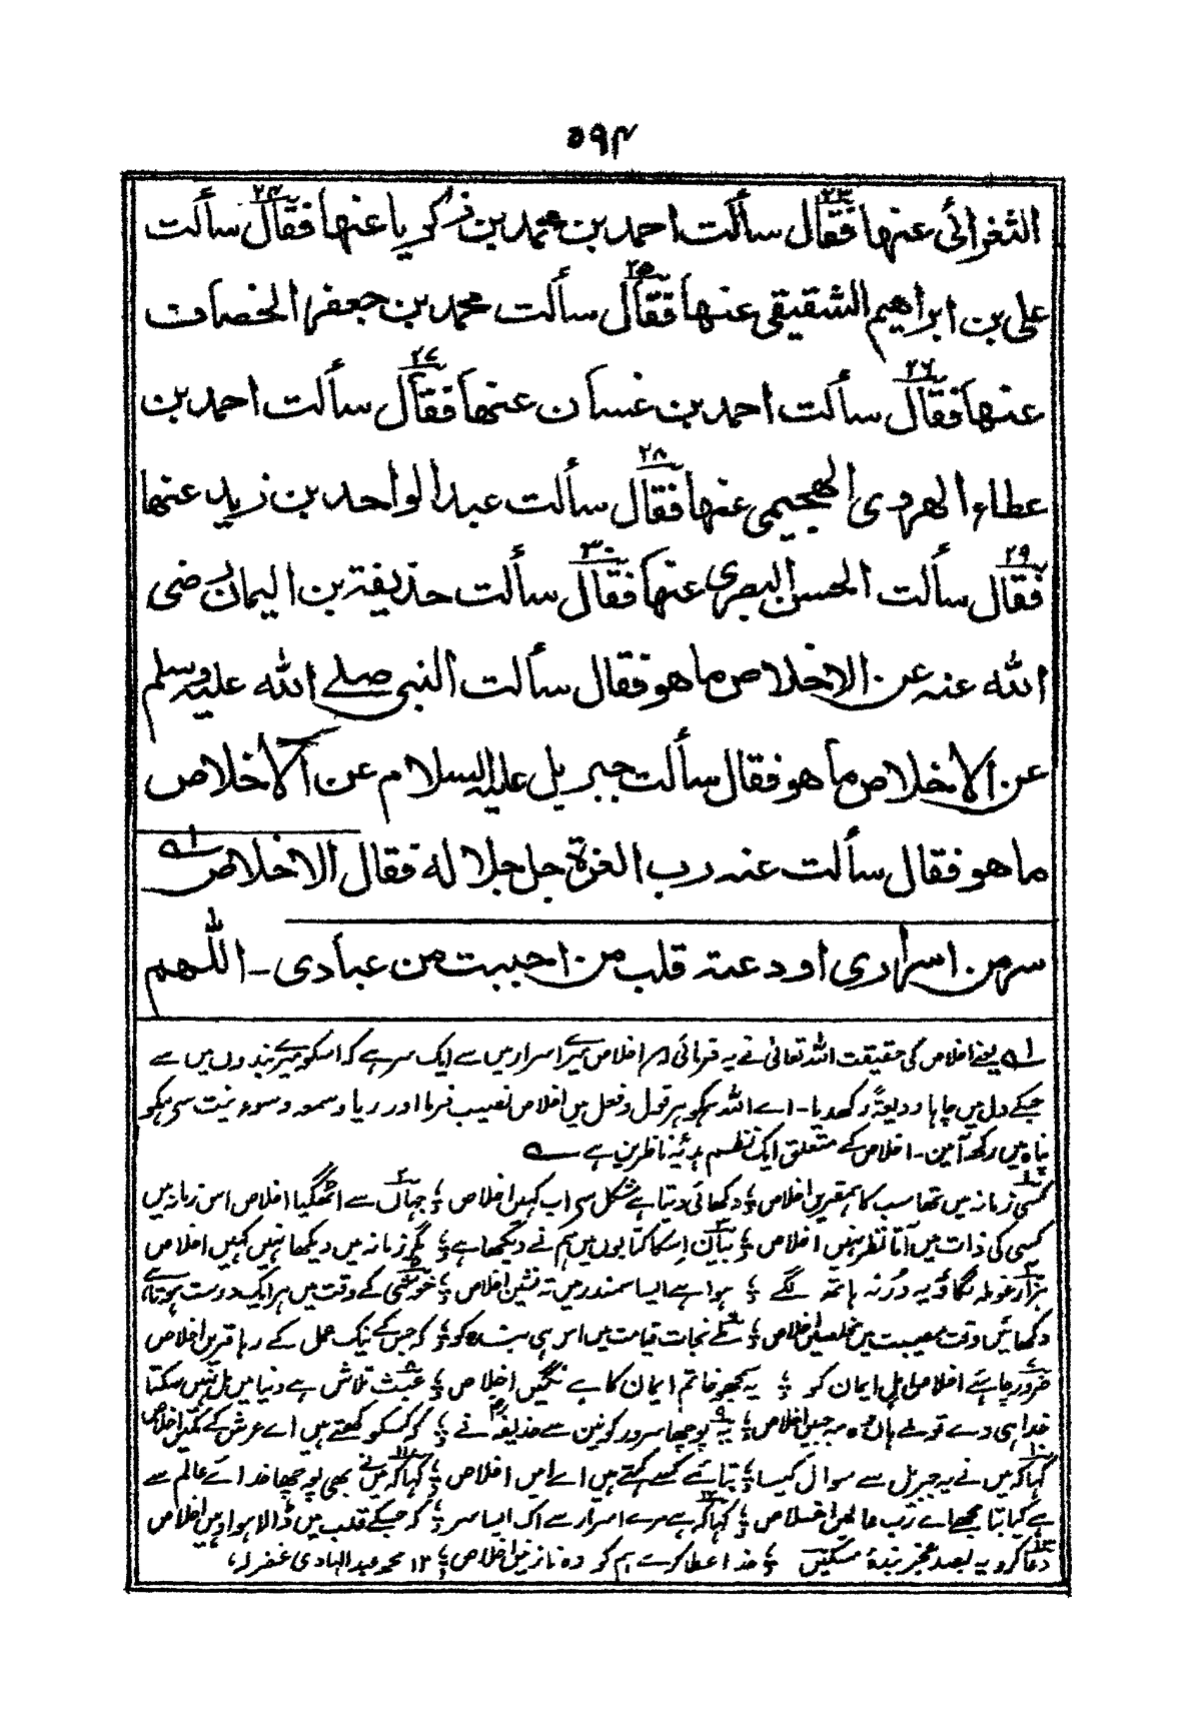 ۵۹۴
الثغرائی عنها فقال سألت احمد بن محمد بن زکریا عنها فقال سألت
۲۳ ۲۴
علی بن ابراهیم الشقیقی عنها فقال سألت محمد بن جعفر الخصاف
۲۵
عنها فقال سألت احمد بن غسان عنها فقال سألت احمد بن
۲۶ ۲۷
عطاء الهروی الهجیمی عنها فقال سألت عبد الواحد بن زید عنها
۲۸
فقال سألت الحسن البصری عنها فقال سألت حذیفة بن الیمان رضی
۲۹ ۳۰
الله عنه عن الاخلاص ما هو فقال سألت النبی صلے الله علیه وسلم
عن الاخلاص ما هو فقال سألت جبریل علیه السلام عن الاخلاص
ما هو فقال سألت عنه رب العزة جل جلاله فقال الاخلاص ۱ه
سر من اسراری اودعته قلب من احببت من عبادی۔ اللّٰهم
۱ه یعنے اخلاص کی حقیقت اللہ تعالیٰ نے یہ فرمائی اخلاص میرے اسرار میں سے ایک سر ہے کہ اسکو میرے بندوں میں سے
جسکے دل میں چاہا ودیعۃً رکھدیا۔ اے اللہ ہمکو ہر قول و فعل میں اخلاص نصیب فرما اور ریا و سمعہ و سوء نیت سے ہمکو
پناہ میں رکھ آمین۔ اخلاص کے متعلق ایک نظم ہدیۂ ناظرین ہے
کسی زمانہ میں تھا سب کا ہمقریں اخلاص ؛ دکھائی دیتا ہے مشکل سے اب کہیں اخلاص ؛ جہاں سے اٹھ گیا اخلاص اس زمانہ میں
کسی کی ذات میں آتا نظر نہیں اخلاص ؛ بیان اسکا کتابوں میں ہم نے دیکھا ہے ؛ مگر زمانہ میں دیکھا نہیں کہیں اخلاص
ہزار غوطہ لگاؤ یہ دُر نہ ہاتھ لگے ؛ ہوا ہے ایسا سمندر میں تہ نشین اخلاص ؛ خوشی کے وقت میں ہر ایک دوست ہوتا ہے
دکھائیں وقت مصیبت میں مخلصین اخلاص ؛ ملے نجات قیامت میں اس ہی بندہ کو ؛ کہ جس کے نیک عمل کے رہا قریں اخلاص
ضرور چاہئے اخلاص اہل ایمان کو ؛ یہ سمجھو خاتم ایمان کا ہے نگیں اخلاص ؛ عبث تلاش ہے دنیا میں مل نہیں سکتا
خدا ہی دے تو ملے ہاں وہ مہ جبیں اخلاص ؛ یہ پوچھا سرور کونین سے حذیفہؓ نے ؛ کہ کسکو کہتے ہیں اے عرش کے مکیں اخلاص
کہا کہ میں نے یہ جبریل سے سوال کیا ؛ بتائے کسے کہتے ہیں اے امیں اخلاص ؛ کہا کہ میں نے بھی پوچھا خدائے عالم سے
ہے کیا بتا مجھے اے رب عالمیں اخلاص ؛ کہا کہ ہے مرے اسرار سے اک ایسا سر ؛ کہ جسکے قلب میں ڈالا ہوا وہیں اخلاص
دعا کرو یہ بصد عجز بندۂ مسکیں ؛ خدا عطا کرے ہم کو وہ نازنیں اخلاص ؛ ۱۲ محمد عبد الہادی غفر لہ